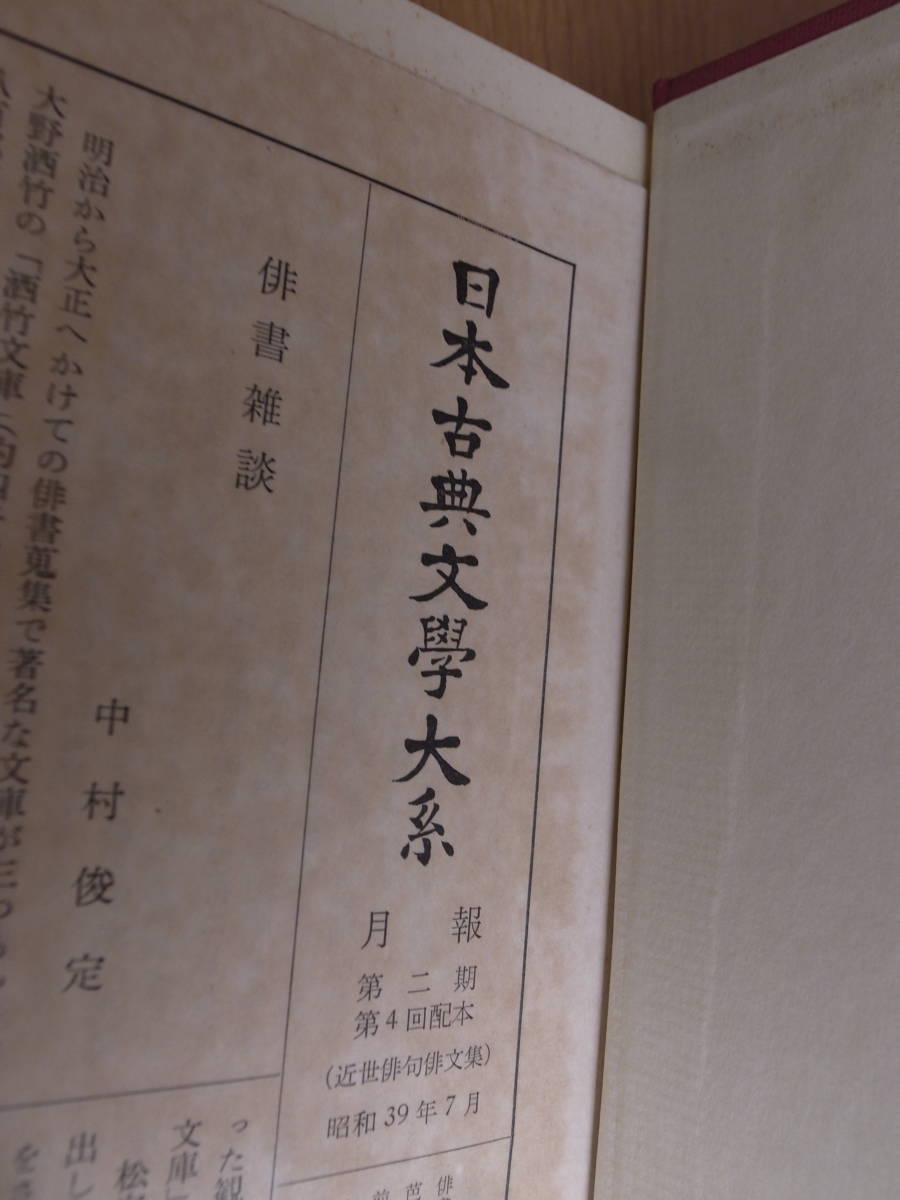 日本古典文學大系
月報
第二期
第4回配本
(近世俳句俳文集)
昭和39年7月
俳書雑談
中村俊定
明治から大正へかけての俳書蒐集で著名な文庫が三つ
大野洒竹の「洒竹文庫」(約四
った観
文庫」
出し